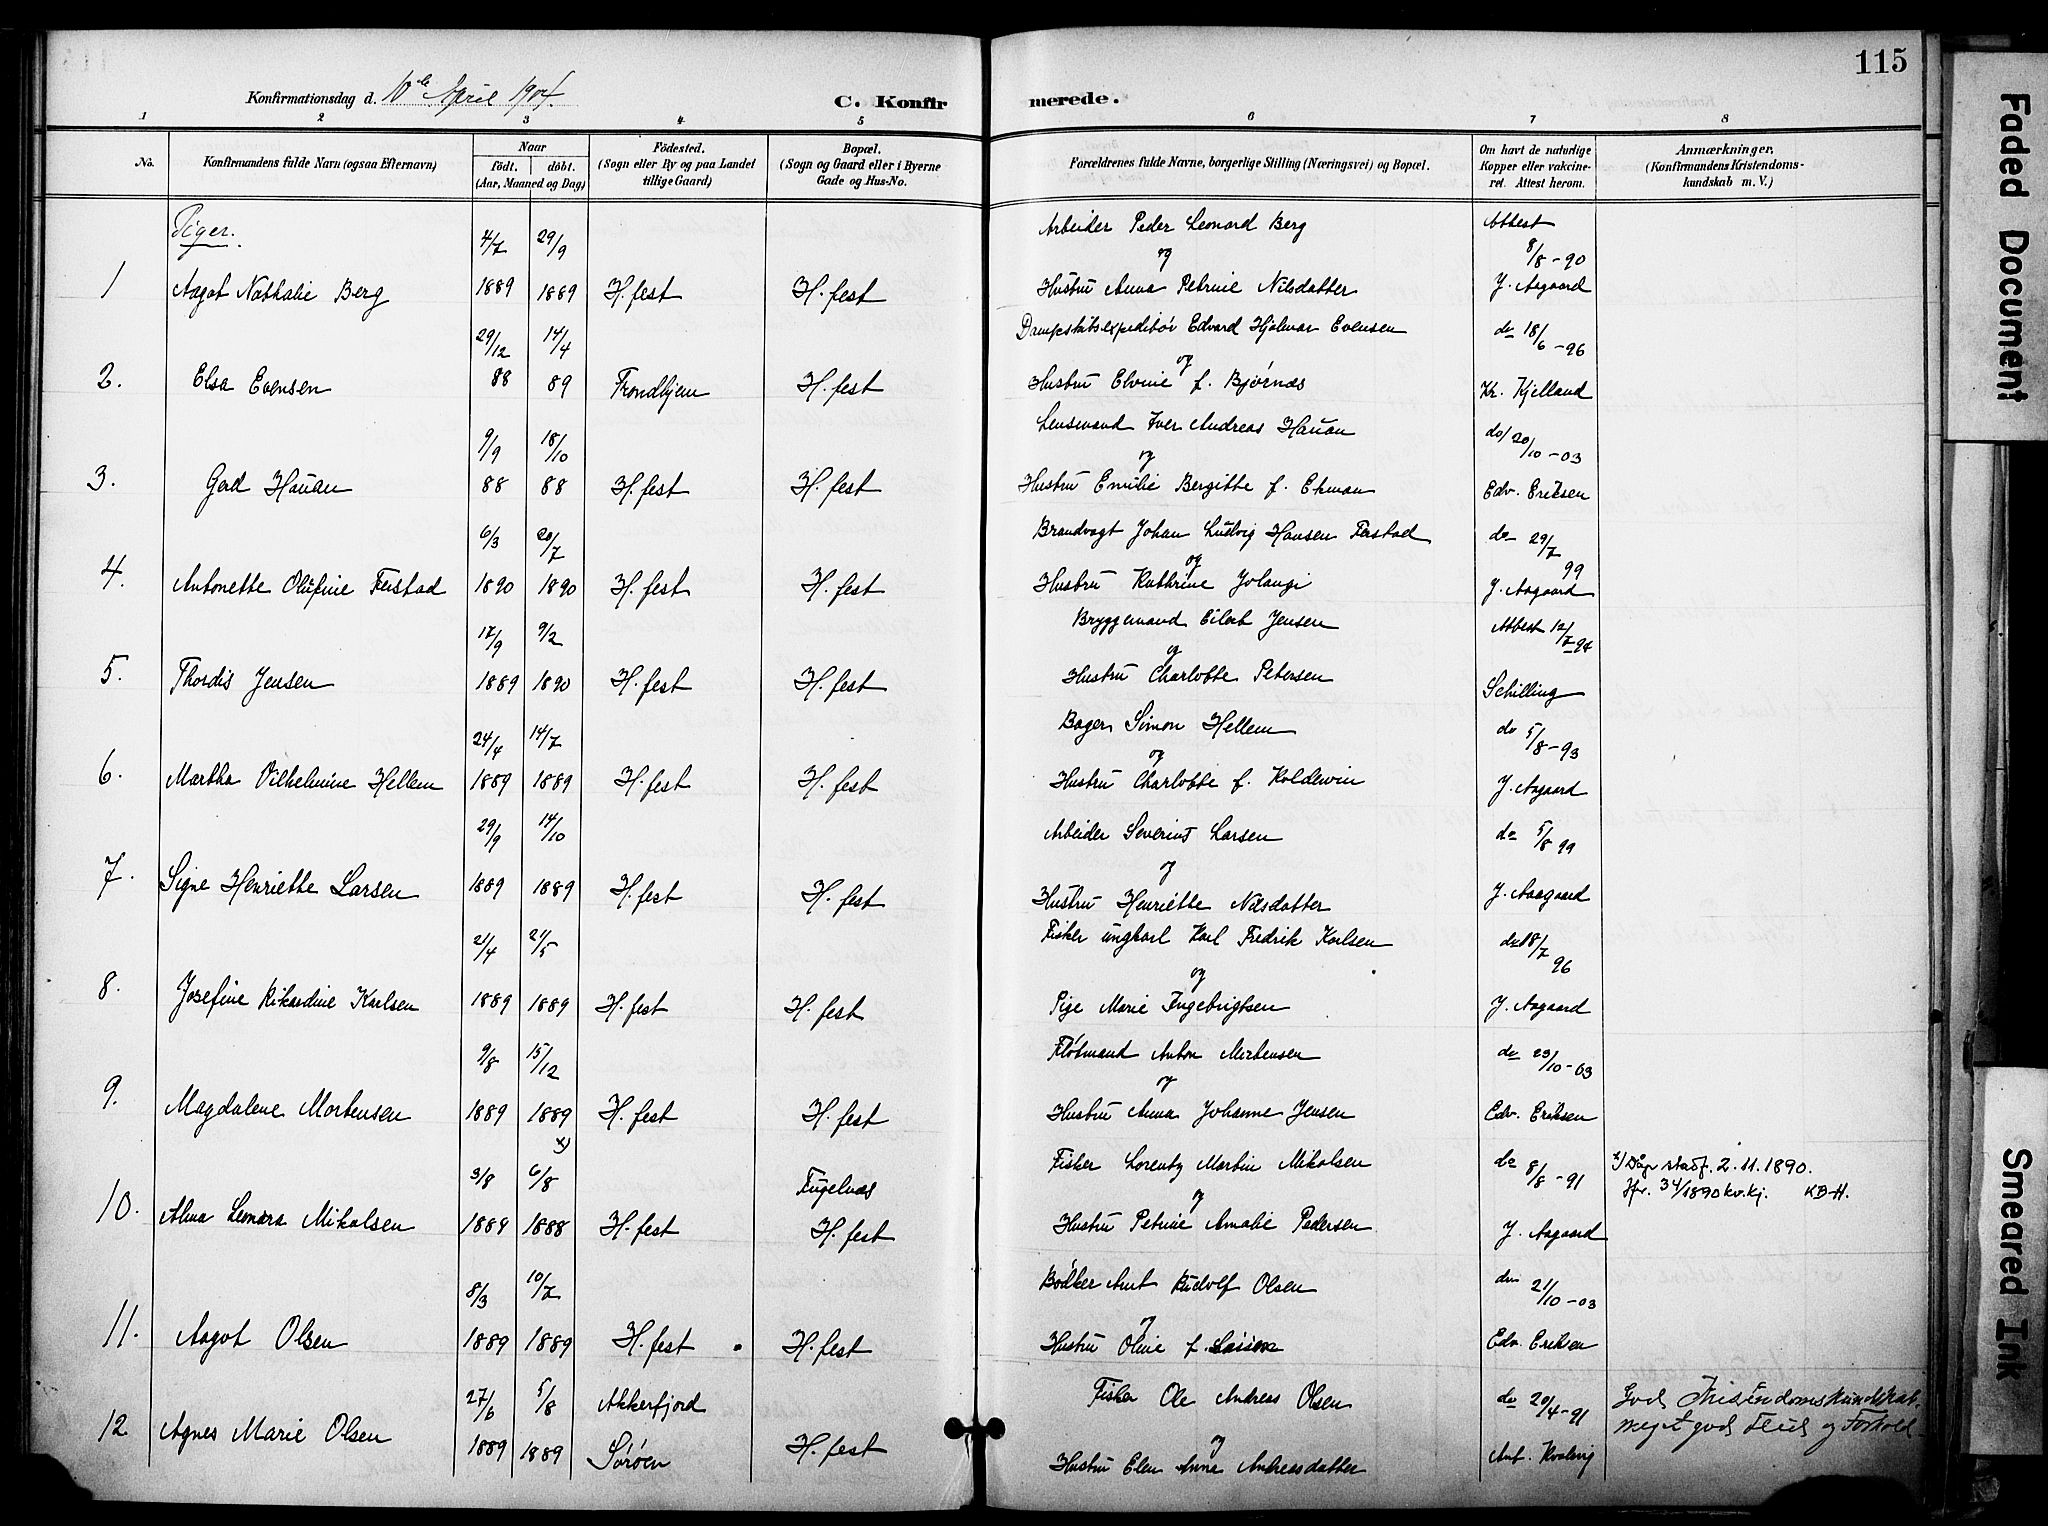 115
Konfirmationsdag d. 10de April 1904.
C. Konfirmerede.
1 2 3 4 5 6 7 8
No.
Konfirmandens fulde Navn (ogsaa Efternavn)
Naar
født. døbt.
(Aar, Maaned og Dag)
Fødested.
(Sogn eller By og paa Landet
tillige Gaard)
Bopæl.
(Sogn og Gaard eller i Byerne
Gade og Hus-No.
Forældrenes fulde Navne, borgerlige Stilling (Næringsvei) og Bopæl.
Om havt de naturlige
Kopper eller vakcine-
ret. Attest herom.
Anmærkninger,
(Konfirmandens Kristendoms-
kundskab m. V.)
Piger.
4/7 29/9 Arbeider Peder Leonard Berg Attest
og 8/8-90
1 Aagot Nathalie Berg 1889 1889 H.fest H.fest Hustru Anna Petrine Nilsdatter J. Aagaard
29/12 14/4 Dampskibsexpeditør Edvard Hjalmar Evensen do 18/6-96
og
2. Elsa Evensen 88 89 Trondhjem H.fest Hustru Elvine f. Bjørnæs Kr. Kjelland
9/9 18/10 Lensmand Iver Andreas Hauan do/20/10-03
og
3. Gerd Hauan 88 88 H.fest H.fest Hustru Emilie Bergitte f. Ekman Edv. Eriksen
6/3 20/7 Brandvagt Johan Ludvig Hansen Feistad do 29/7 99
og
4. Antonette Olufine Feistad 1890 1890 H.fest H.fest Hustru Kathrine Jolangi J. Aagaard
17/9 9/2 Bryggemand Eilert Jensen Attest 12/7-94
og
5. Thordis Jensen 1889 1890 H.fest H.fest Hustru Charlotte Petersen Schilling
24/4 14/7 Bager Simon Hellem do 5/8-93
og
6. Martha Vilhelmine Hellem 1889 1889 H.fest H.fest Hustru Charlotte f. Koldevin J. Aagaard
29/9 14/10 Arbeider Severin Larsen do 5/8 99
og
7. Signe Henriette Larsen 1889 1889 H.fest H.fest Hustru Henriette Nilsdatter J. Aagaard
21/4 21/5 Fisker ungkarl Karl Fredrik Karlsen do 18/7 96
og
8. Josefine Rikardine Karlsen 1889 1889 H.fest H.fest Pige Marie Ingebrigtsen J. Aagaard
9/8 15/12 Fløtmand Anton Mortensen do 23/10-03
og
9. Magdalene Mortensen 1889 1889 H.fest H.fest Hustru Anna Johanne Jensen Edv. Eriksen
x)
3/8 6/8 Fuglenæs Fisker Lorentz Martin Mikalsen do 8/8-91 x/ Dåp stadf. 2.11.1890.
og Jfr. 34/1890 kv.kj. KBH.
10. Alma Leonora Mikalsen 1889 1888 H.fest H.fest Hustru Petrine Amalie Pedersen J. Aagaard
8/3 10/7 Bødker Arnt Rudolf Olsen do 21/10-03
og
11. Aagot Olsen 1889 1889 H.fest H.fest Hustru Oline f. Edv. Eriksen
27/6 5/8 Akkerfjord Fisker Ole Andreas Olsen do 20/4-91 God Kristendomskundskab,
og meget god Flid og Forhold
12 Agnes Marie Olsen 1889 1889 Sørøen H.fest Hustru Elen Anna Andreasdatter Ant. Kvalvig
Faded Document
Smeared Ink